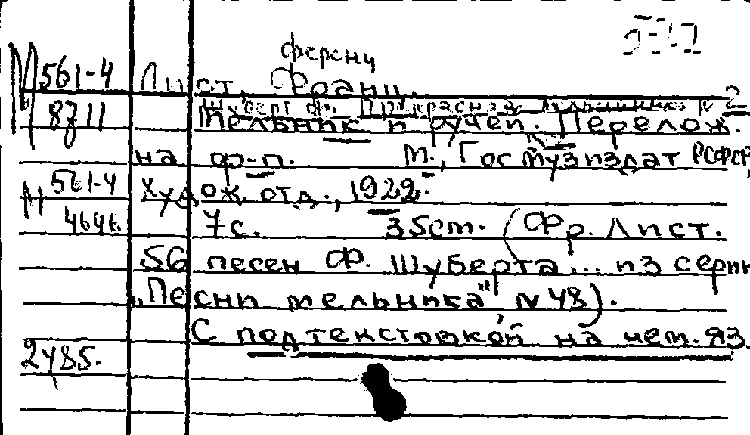 ференц
М 561-4 Лист, Франц.
8711 Шуберт Фр. Прекрасная мельничиха № 2
Мельник и ручей. Перелож.
на ф-п. М., Госмузиздат РСФСР,
М 561-4 Худож. отд., 1922.
4646. 7 с. 35 cm. (Фр. Лист.
56 песен Ф. Шуберта... из серии
„Песни мельника", № 48).
С подтекстовкой на нем. яз.
2485.